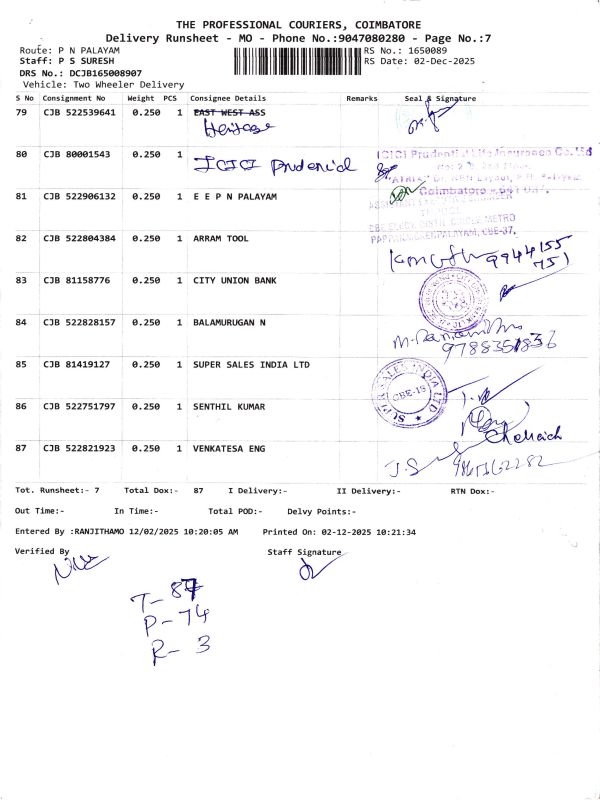 THE PROFESSIONAL COURIERS, COIMBATORE
Delivery Runsheet - MO - Phone No.:9047080280 - Page No.:7
Route: P N PALAYAM RS No.: 1650089
Staff: P S SURESH RS Date: 02-Dec-2025
DRS No.: DCJB165008907
Vehicle: Two Wheeler Delivery
S No Consignment No Weight PCS Consignee Details Remarks Seal & Signature
79 CJB 522539641 0.250 1 EAST WEST ASS
Heritage
80 CJB 80001543 0.250 1 ICICI Prudencial
ICICI Prudential Life Insurance Co. Ltd
81 CJB 522906132 0.250 1 E E P N PALAYAM
METRO
CBE-37.
82 CJB 522804384 0.250 1 ARRAM TOOL
9944155
751
83 CJB 81158776 0.250 1 CITY UNION BANK
84 CJB 522828157 0.250 1 BALAMURUGAN N
9788351836
85 CJB 81419127 0.250 1 SUPER SALES INDIA LTD
SUPER SALES INDIA LTD
CBE-18
86 CJB 522751797 0.250 1 SENTHIL KUMAR
87 CJB 522821923 0.250 1 VENKATESA ENG
J.S
Tot. Runsheet:- 7 Total Dox:- 87 I Delivery:- II Delivery:- RTN Dox:-
Out Time:- In Time:- Total POD:- Delvy Points:-
Entered By :RANJITHAMO 12/02/2025 10:20:05 AM Printed On: 02-12-2025 10:21:34
Verified By Staff Signature
T- 87
P- 74
R- 3